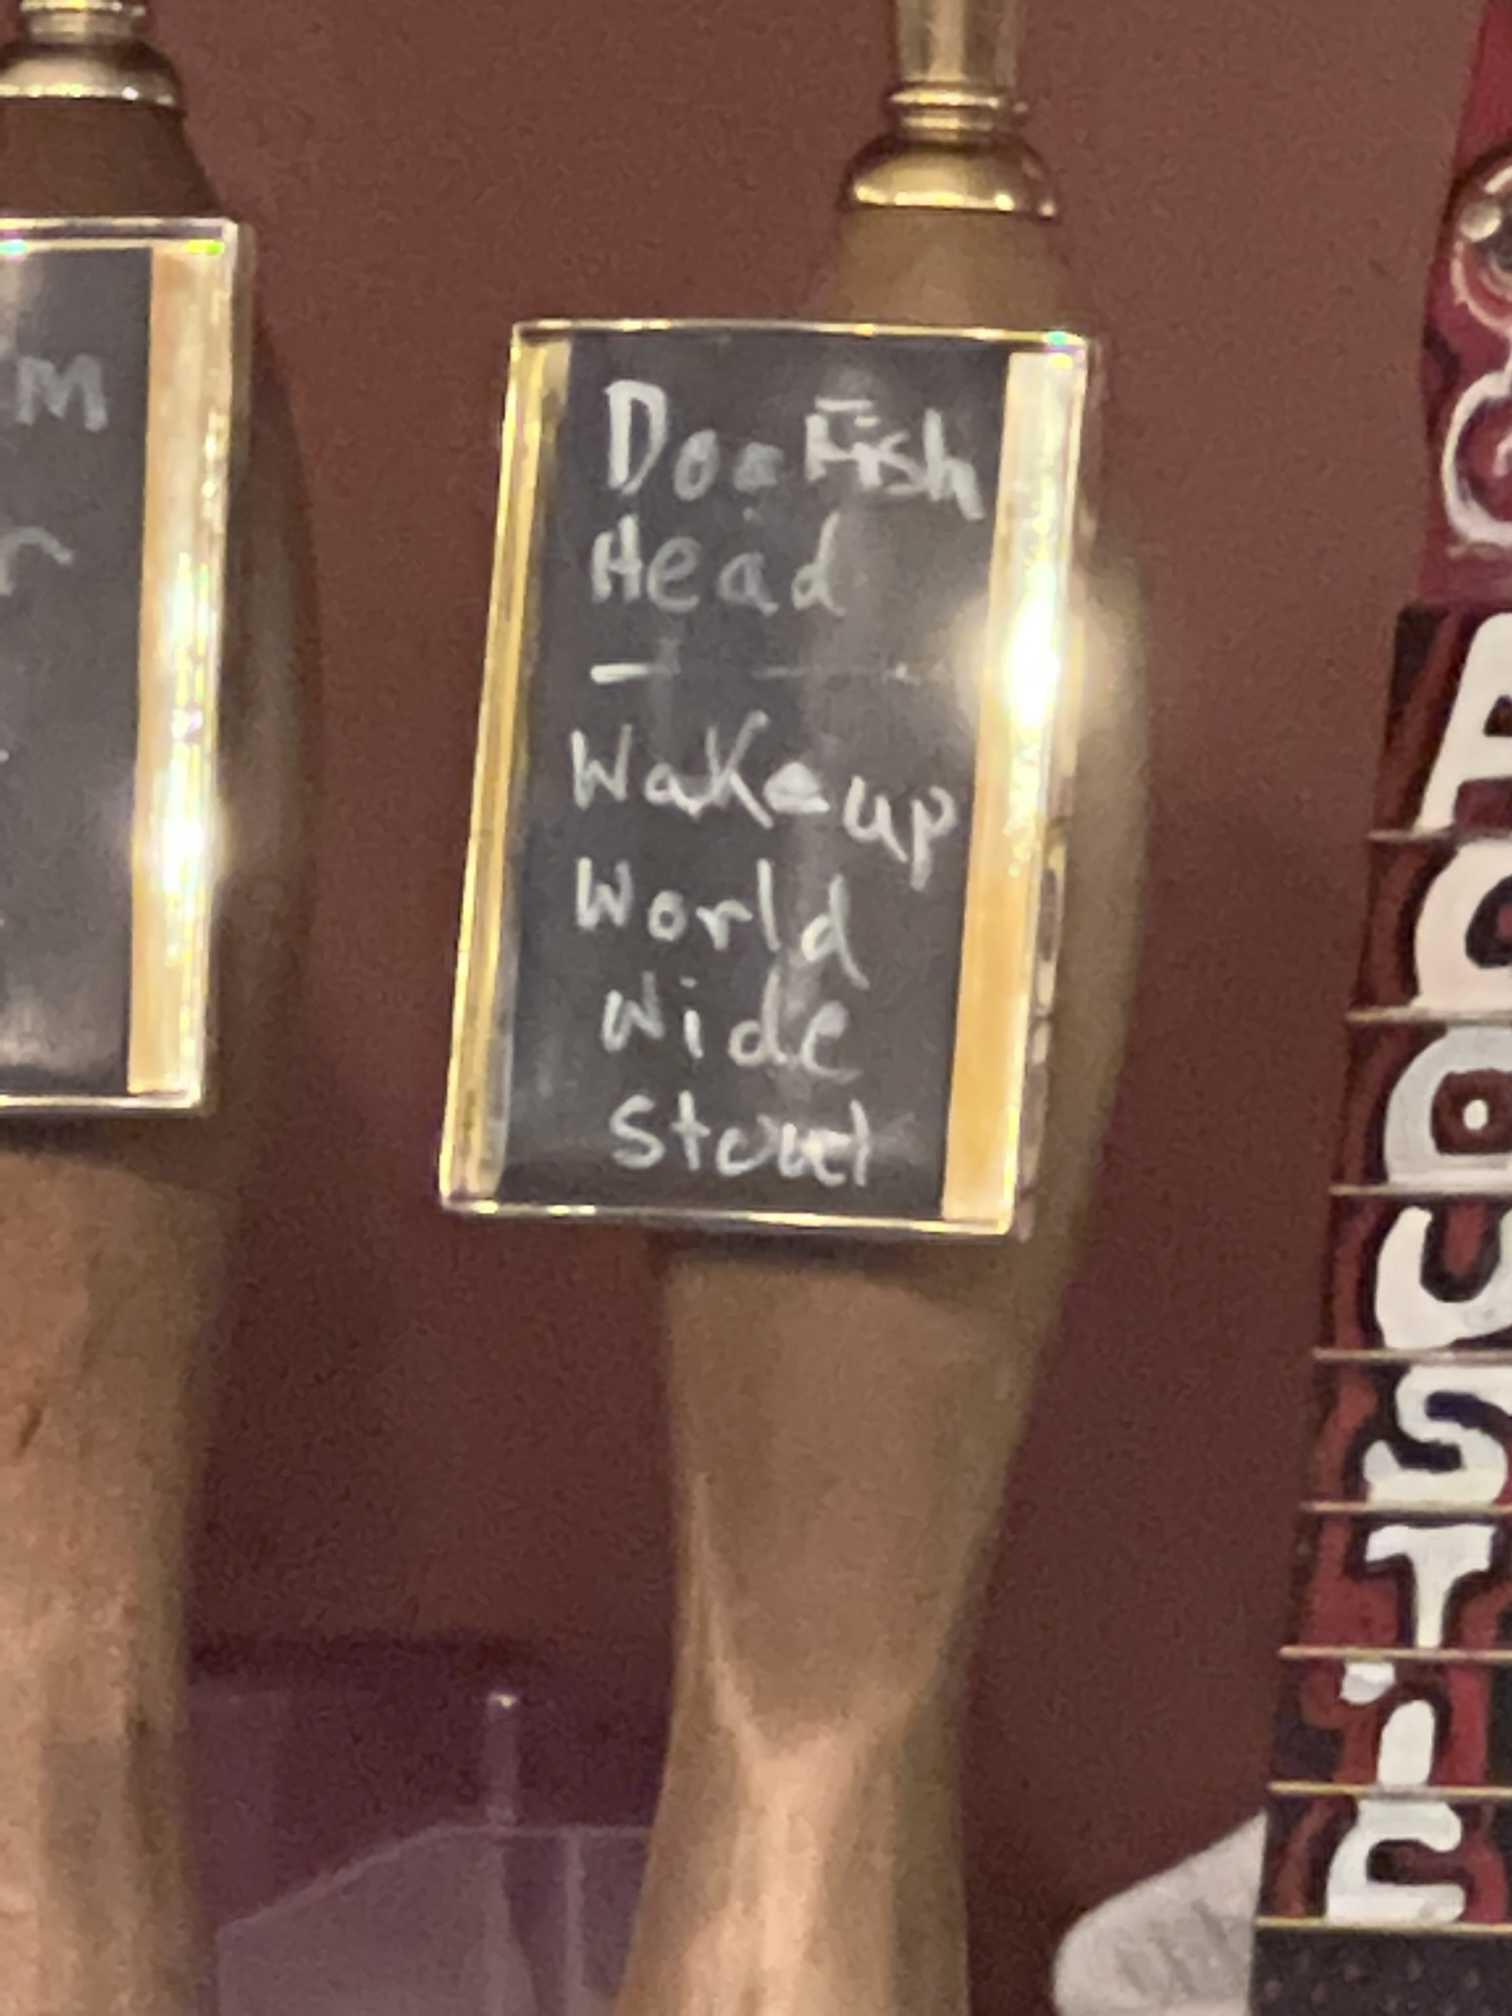 M
r
DogFish
Head
Wake up
World
Wide
Stout
ACOUSTIC